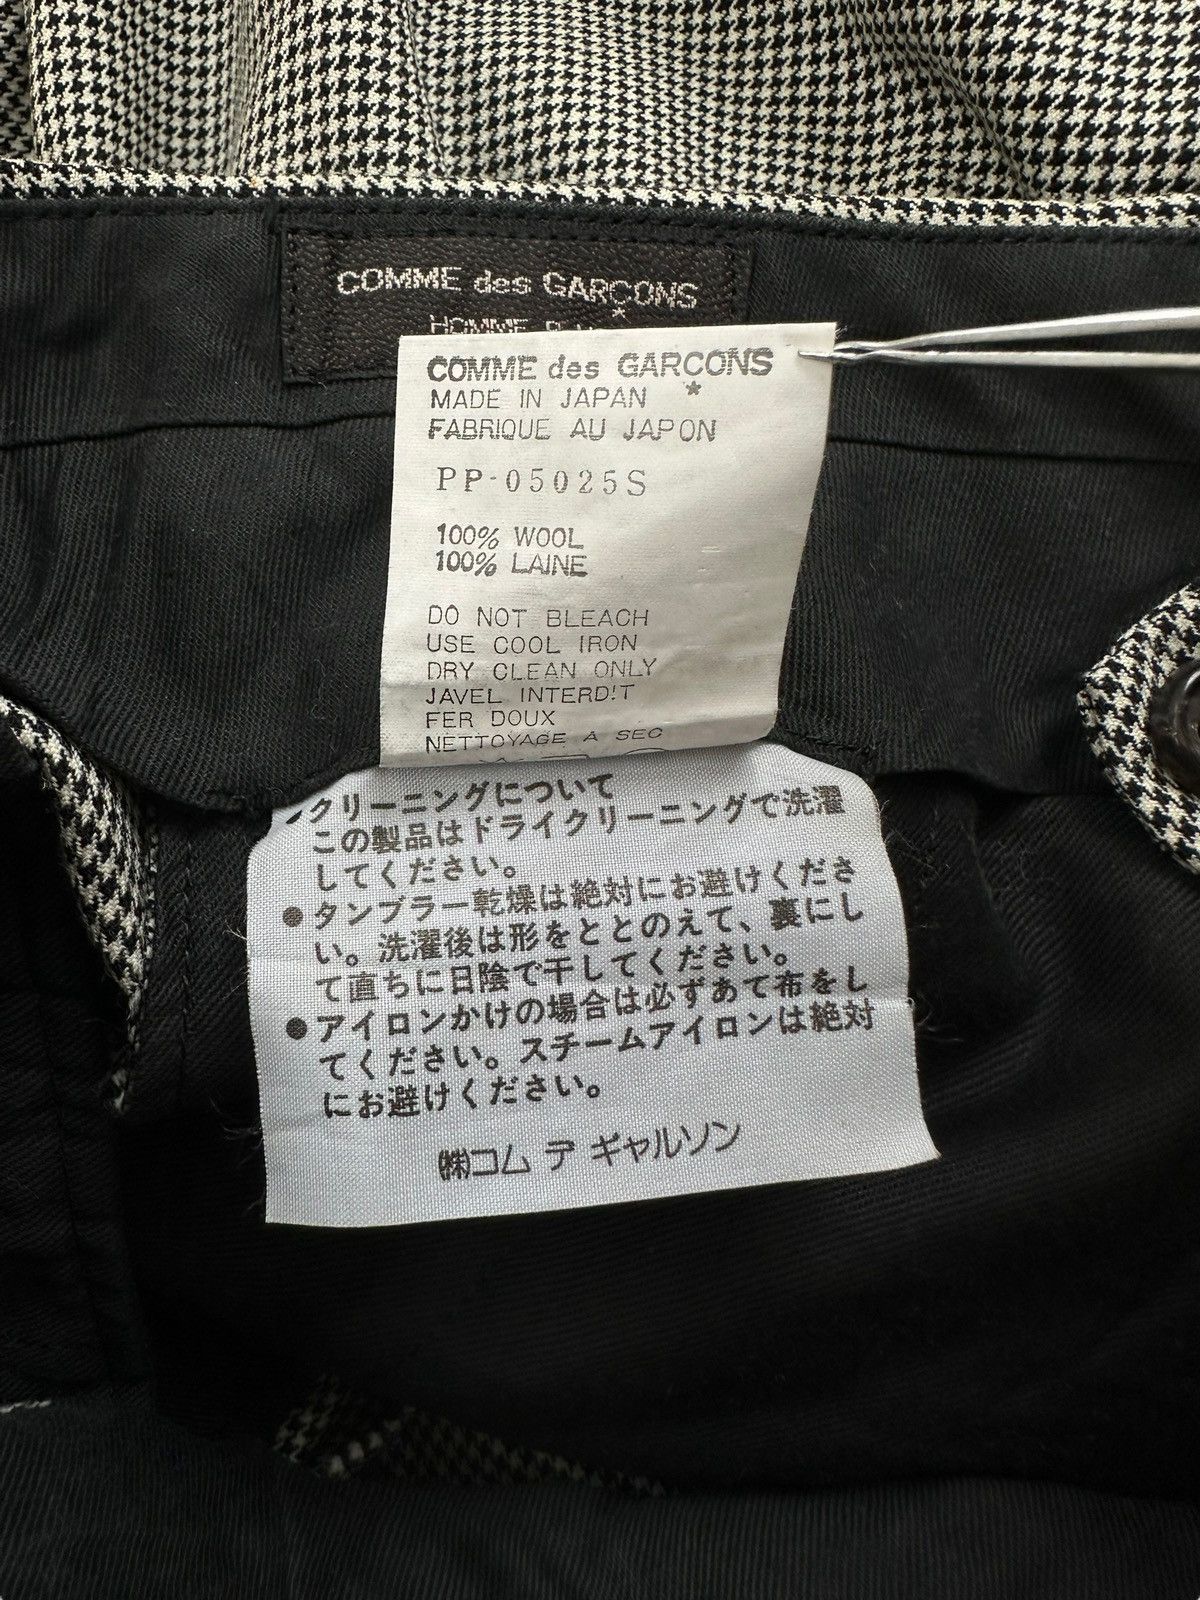 COMME des GARÇONS
HOMME
COMME des GARCONS
*
MADE IN JAPAN
FABRIQUE AU JAPON
PP-05025S
100% WOOL
100% LAINE
DO NOT BLEACH
USE COOL IRON
DRY CLEAN ONLY
JAVEL INTERDIT
FER DOUX
NETTOYAGE A SEC
クリーニングについて
この製品はドライクリーニングで洗濯
してください。
●タンブラー乾燥は絶対にお避けくださ
い。洗濯後は形をととのえて、裏にし
て直ちに日陰で干してください。
●アイロンかけの場合は必ずあて布をし
てください。スチームアイロンは絶対
にお避けください。
㈱コム デ ギャルソン